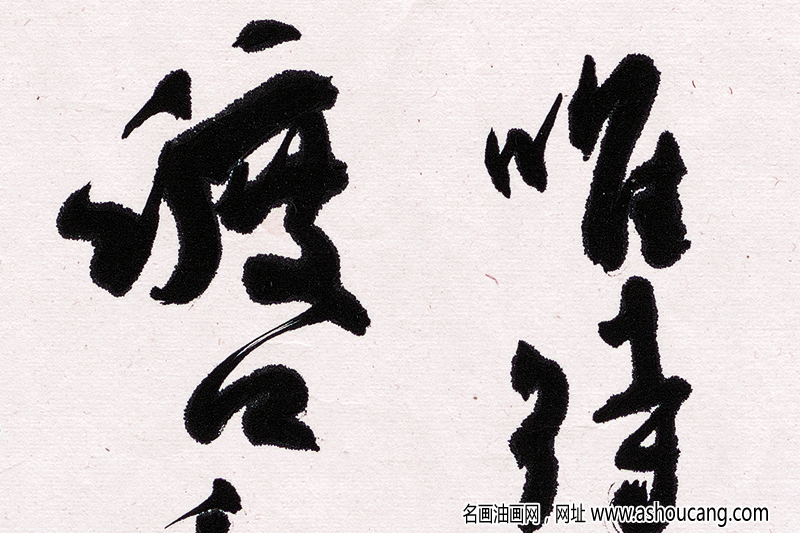 唯待
渡口
名画油画网，网址 www.ashoucang.com